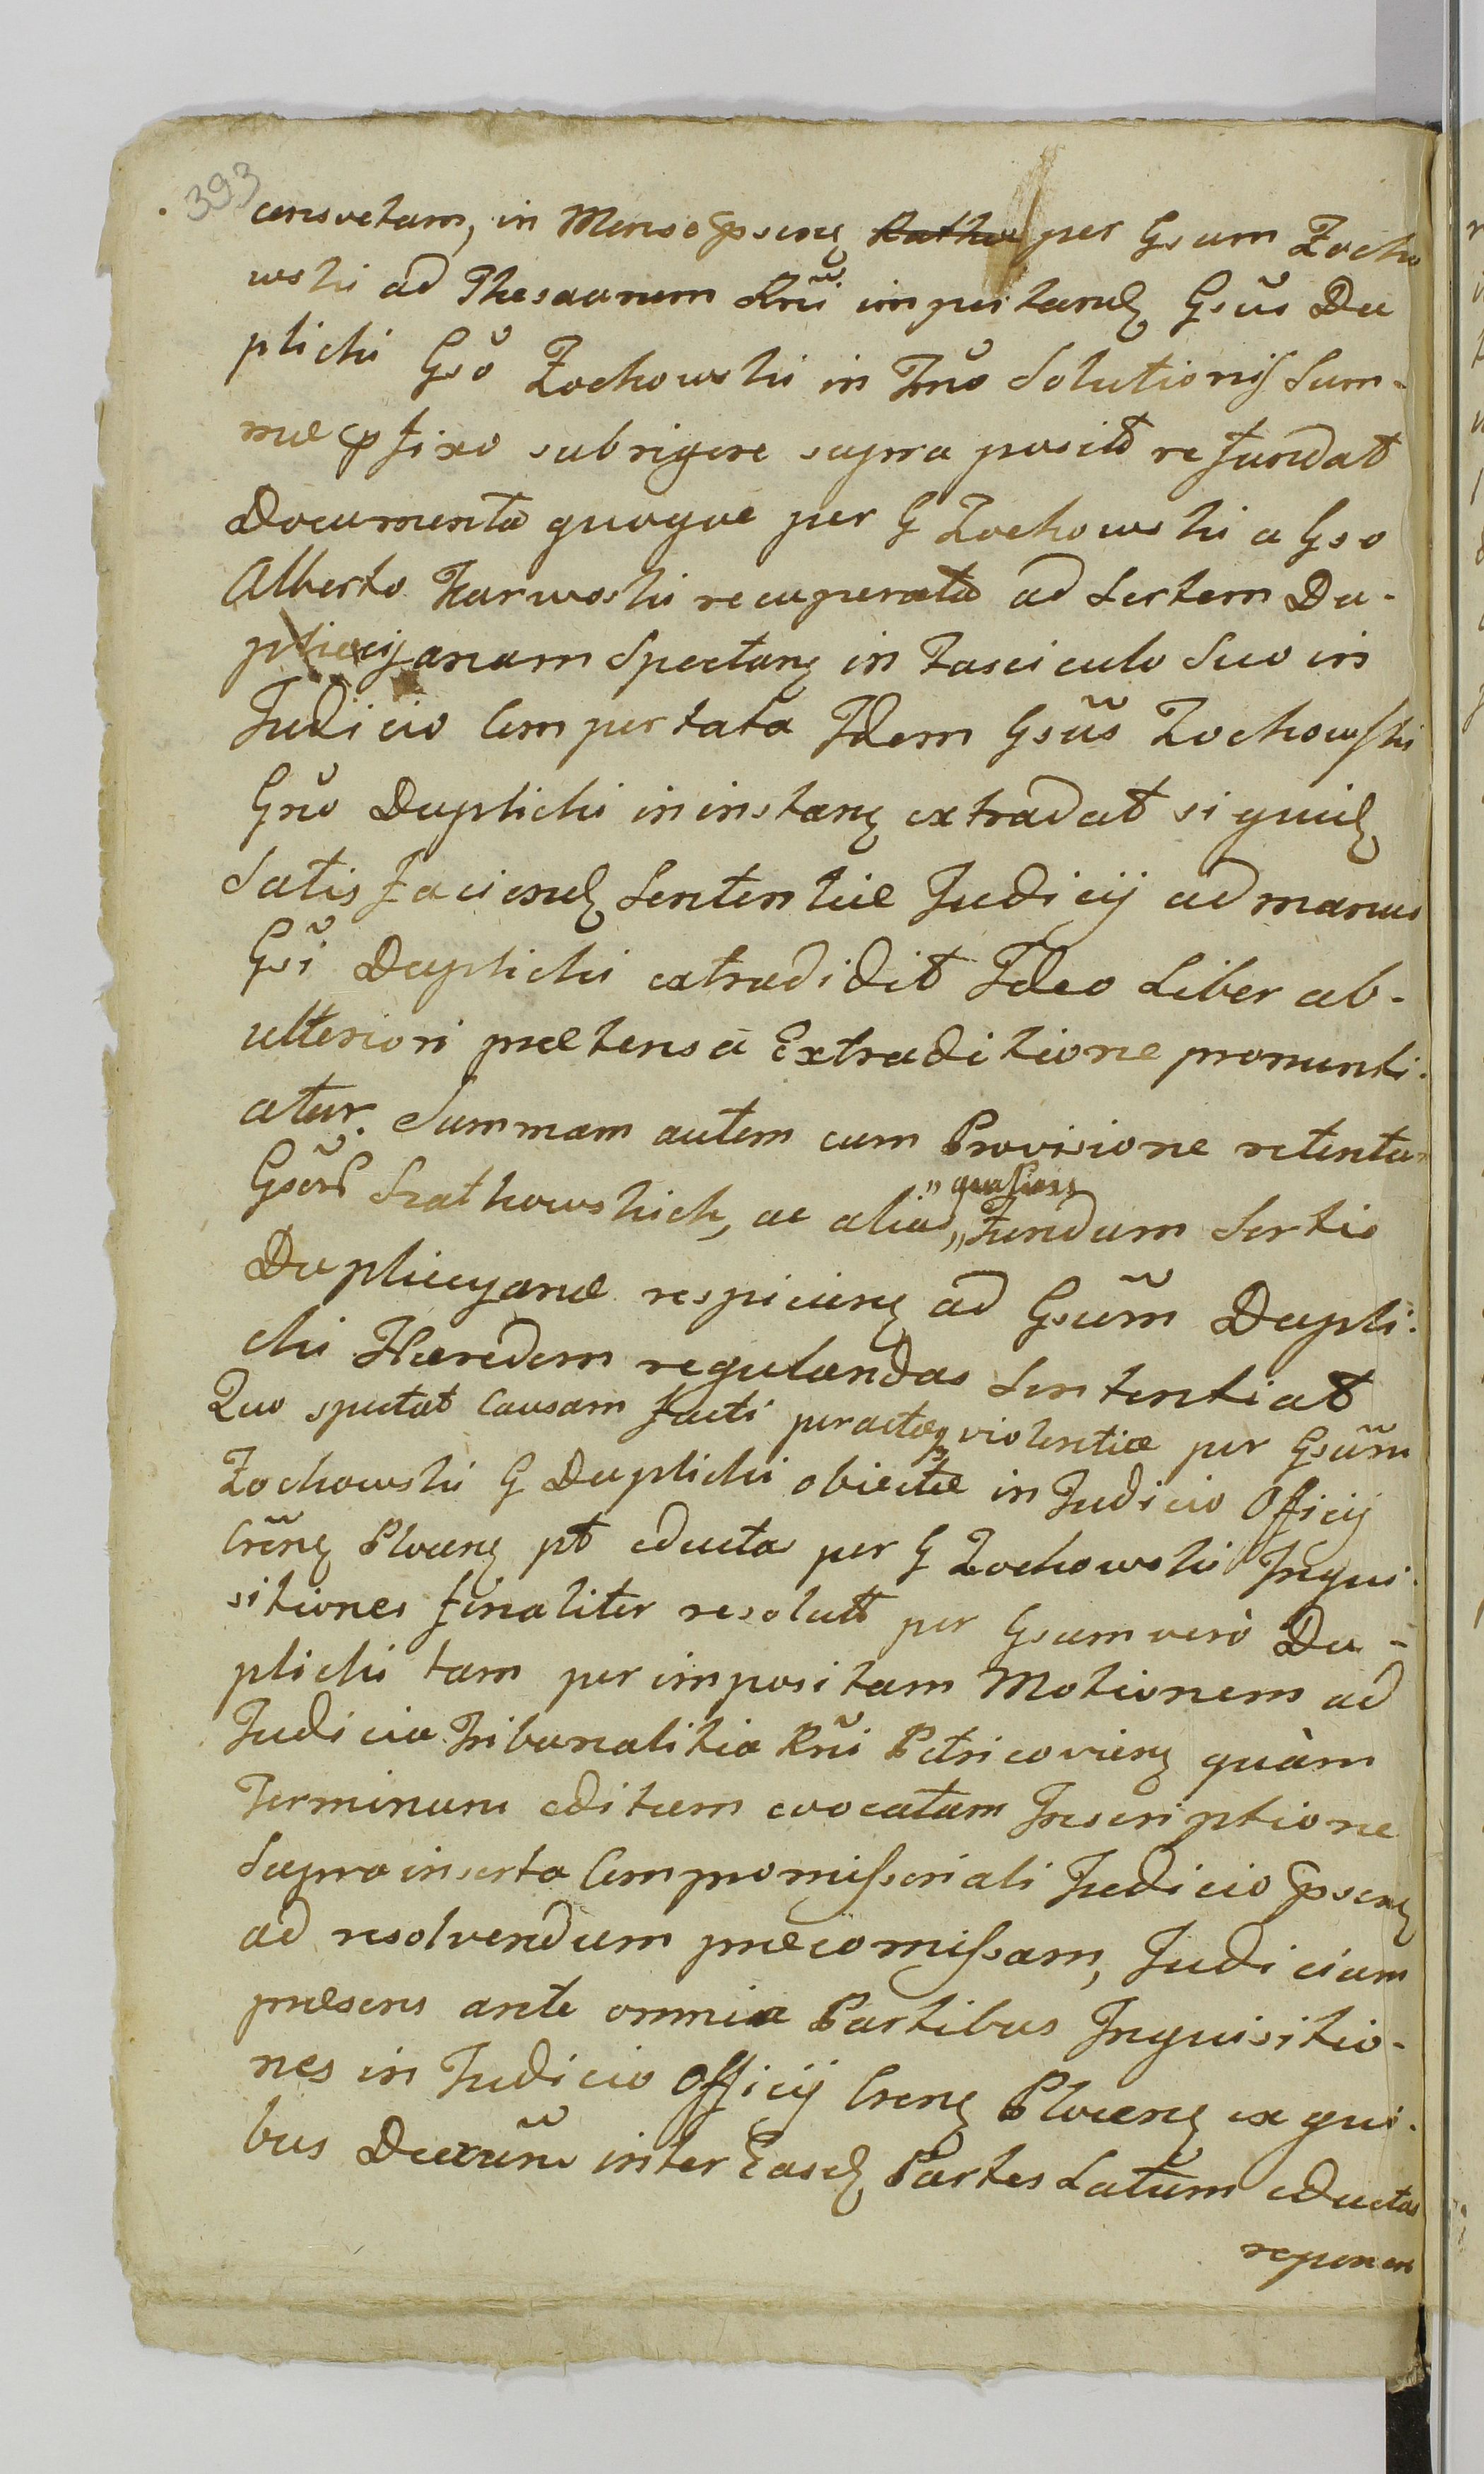 393
consvetam, in Mense pseng per Gsum Zocho
wski ad Thesaurum Rñi importand Gsũs Du
plicki Gsõ Zochowski in Tmõ Solutionis Sum-
mæ pfixo sub rigore supra posito refundat
Documenta quoque per G Zochowski a Gso
Alberto Karwoski recuperata ad Sortem Du-
plicijanam Spectang in Fasciculo Suo in
Judicio Comportata Idem Gsũs Zochowski
Gsõ Duplicki in instang extradat siquid
Satisfaciend Sententiæ Judicij ad manus
Gsĩ Duplicki extradidit Ideo Liber ab-
ulteriori prætensa Extraditione pronunti-
atur. Summam autem cum Provisione retenta
Gsõr Szathowskich, ac alias „quasvis
„Fundum Sortis
Duplicyanæ respiciens ad Gsũm Dupli-
cki Hæredem regulandas Sententiat
Quo spectat Causam facti peractæq violentiæ per Gsũm
Zochowski G Duplicki obiectæ in Judicio Officij
Crẽng Ploceng pt educta per G Zochowski Inqui-
sitiones finaliter resolut per Gsum verò Du-
plicki tam per impositam Motionem ad
Judicia Tribunalitia Rñi Petricovieng quàm
Terminum editum evocatam Inscriptione
Supra inserta Compromissoriali Judicio pseng
ad resolvendum præcomissam, Judicium
præsens ante omnia Partibus Inquisitio-
nes in Judicio Officij Creng Ploceng ex qui-
bus Decretũm inter Easd Partes Latum eductas
reponen